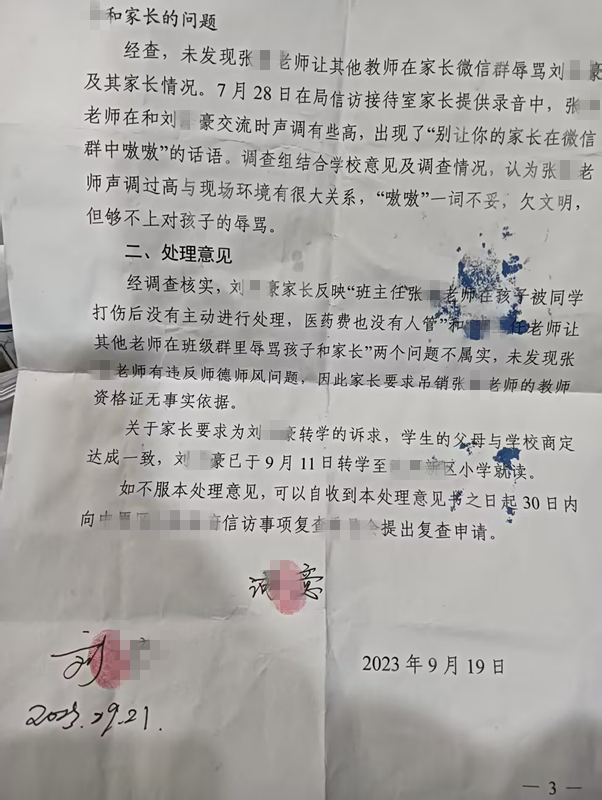 和家长的问题
经查，未发现张 老师让其他教师在家长微信群辱骂刘 豪
及其家长情况。7月28日在局信访接待室家长提供录音中，张
老师在和刘 豪交流时声调有些高，出现了“别让你的家长在微信
群中嗷嗷”的话语。调查组结合学校意见及调查情况，认为张 老
师声调过高与现场环境有很大关系，“嗷嗷”一词不妥，欠文明，
但够不上对孩子的辱骂。
二、处理意见
经调查核实，刘 豪家长反映“班主任张 老师在孩子被同学
打伤后没有主动进行处理，医药费也没有人管”和 任老师让
其他老师在班级群里辱骂孩子和家长”两个问题不属实，未发现张
老师有违反师德师风问题，因此家长要求吊销张 老师的教师
资格证无事实依据。
关于家长要求为刘 豪转学的诉求，学生的父母与学校商定
达成一致，刘 豪已于9月11日转学至 新区小学就读。
如不服本处理意见，可以自收到本处理意见书之日起30日内
向 信访事项复查 会提出复查申请。
刘
2023年9月19日
2023.09.21.
— 3 —